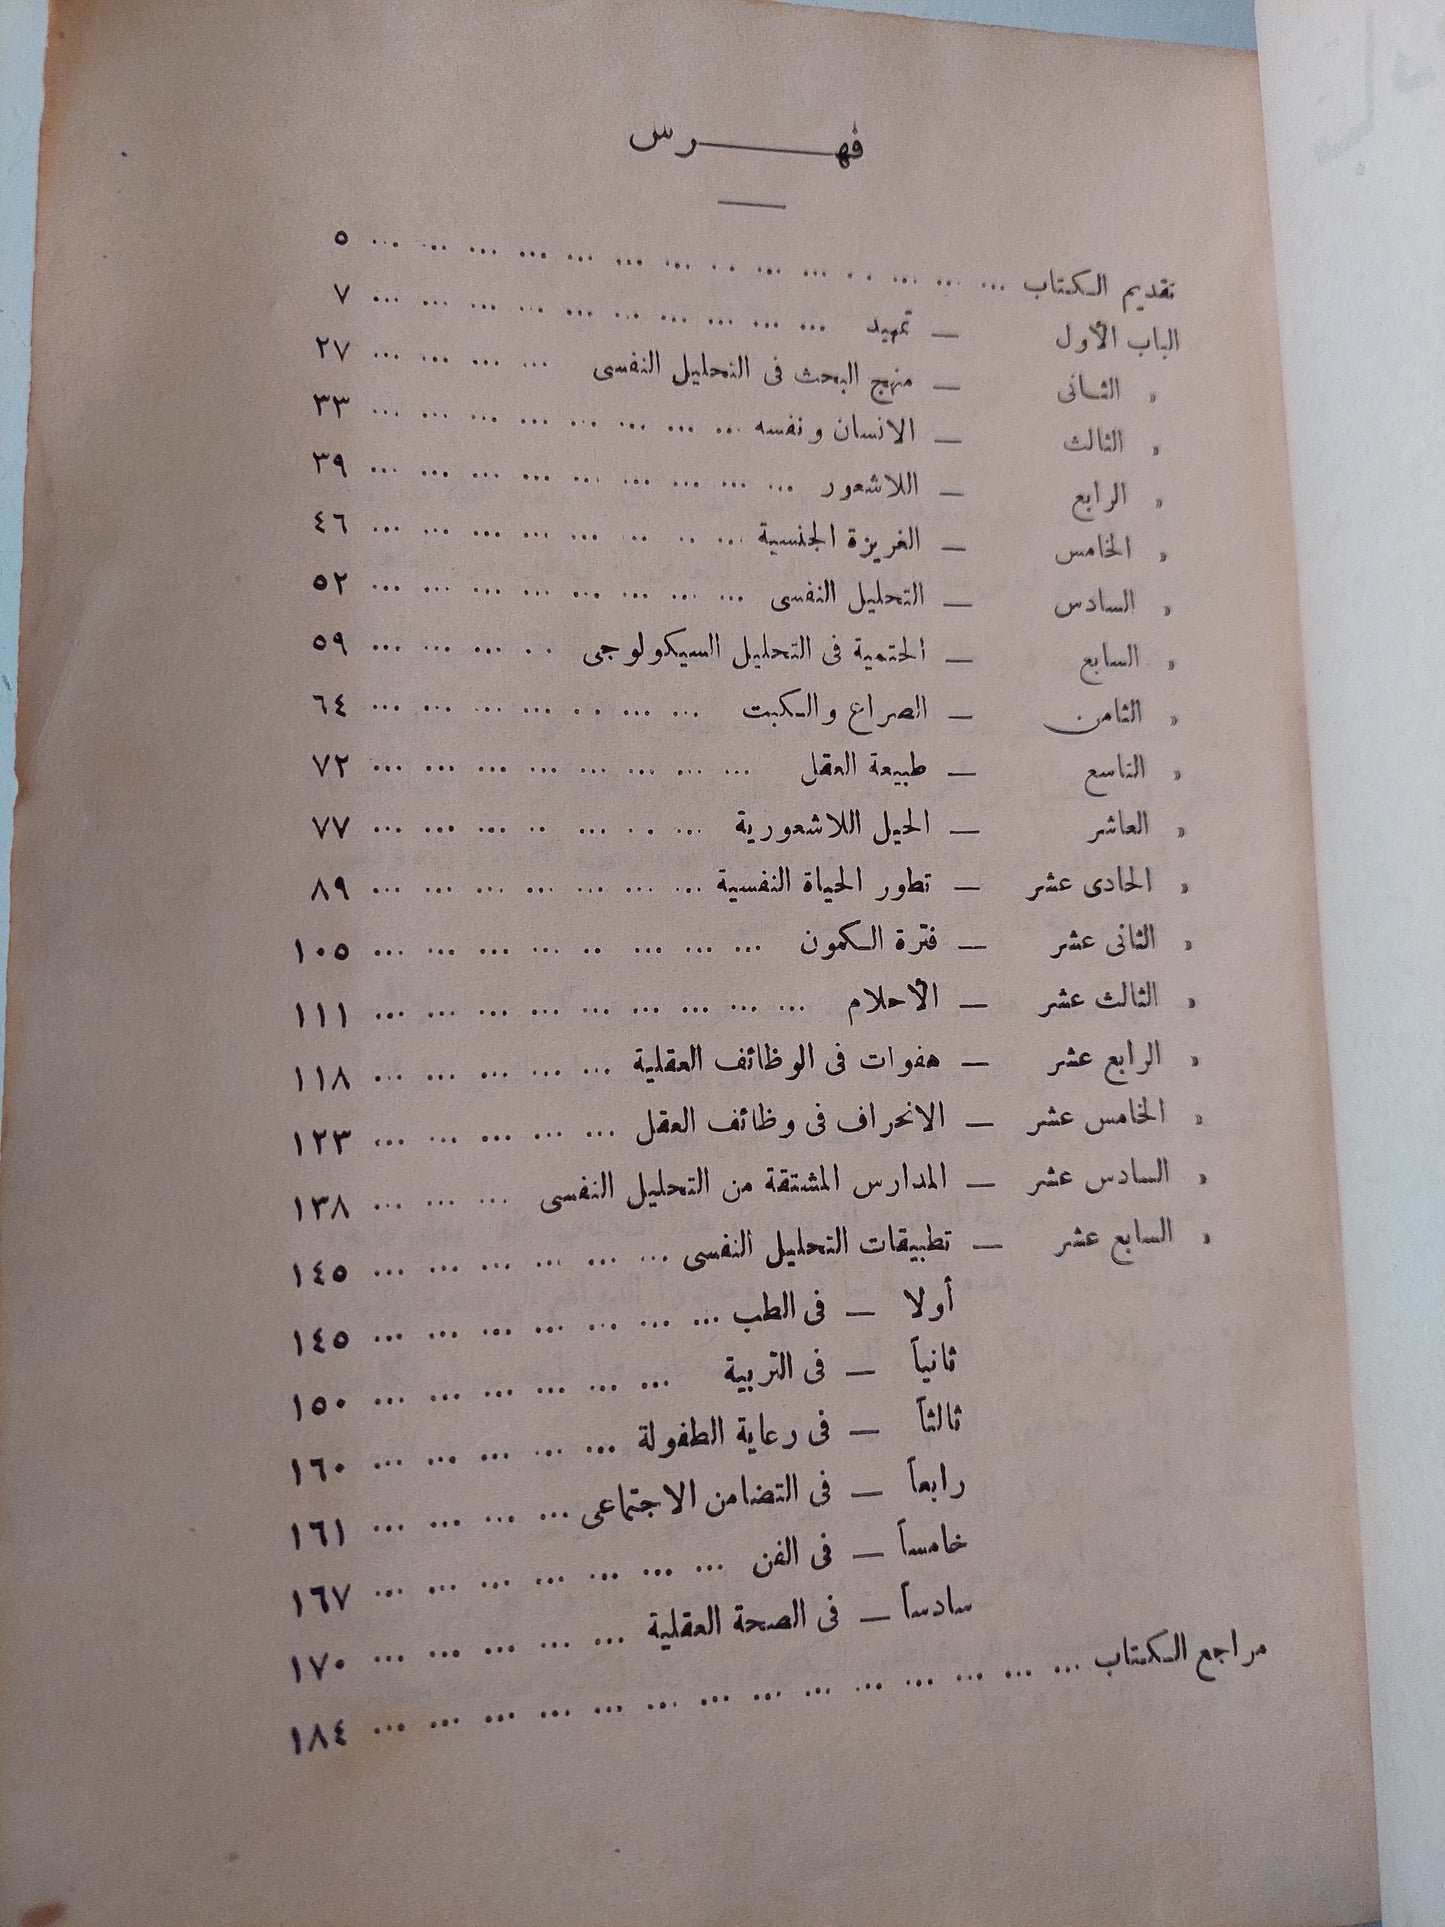 فهـرس
تقديم الكتاب ... ... ... ... ... ... ... ... ... ... ... ... ... ٥
الباب الأول — تمهيد ... ... ... ... ... ... ... ... ... ... ٧
» الثانى — منهج البحث فى التحليل النفسى ... ... ... ... ٢٧
» الثالث — الانسان ونفسه ... ... ... ... ... ... ... ... ٣٣
» الرابع — اللاشعور ... ... ... ... ... ... ... ... ... ٣٩
» الخامس — الغريزة الجنسية ... ... ... ... ... ... ... ... ٤٦
» السادس — التحليل النفسى ... ... ... ... ... ... ... ... ٥٢
» السابع — الحتمية فى التحليل السيكولوجى ... ... ... ... ٥٩
» الثامن — الصراع والكبت ... ... ... ... ... ... ... ٦٤
» التاسع — طبيعة العقل ... ... ... ... ... ... ... ... ٧٢
» العاشر — الحيل اللاشعورية ... ... ... ... ... ... ... ٧٧
» الحادى عشر — تطور الحياة النفسية ... ... ... ... ... ... ... ٨٩
» الثانى عشر — فترة الكمون ... ... ... ... ... ... ... ... ١٠٥
» الثالث عشر — الأحلام ... ... ... ... ... ... ... ... ... ١١١
» الرابع عشر — هفوات فى الوظائف العقلية ... ... ... ... ... ١١٨
» الخامس عشر — الانحراف فى وظائف العقل ... ... ... ... ... ١٢٣
» السادس عشر — المدارس المشتقة من التحليل النفسى ... ... ... ١٣٨
» السابع عشر — تطبيقات التحليل النفسى ... ... ... ... ... ... ١٤٥
أولا — فى الطب ... ... ... ... ... ... ... ١٤٥
ثانياً — فى التربية ... ... ... ... ... ... ١٥٠
ثالثاً — فى رعاية الطفولة ... ... ... ... ... ١٦٠
رابعاً — فى التضامن الاجتماعى ... ... ... ... ١٦١
خامساً — فى الفن ... ... ... ... ... ... ... ١٦٧
سادساً — فى الصحة العقلية ... ... ... ... ... ١٧٠
مراجع الكتاب ... ... ... ... ... ... ... ... ... ... ... ... ... ... ١٨٤